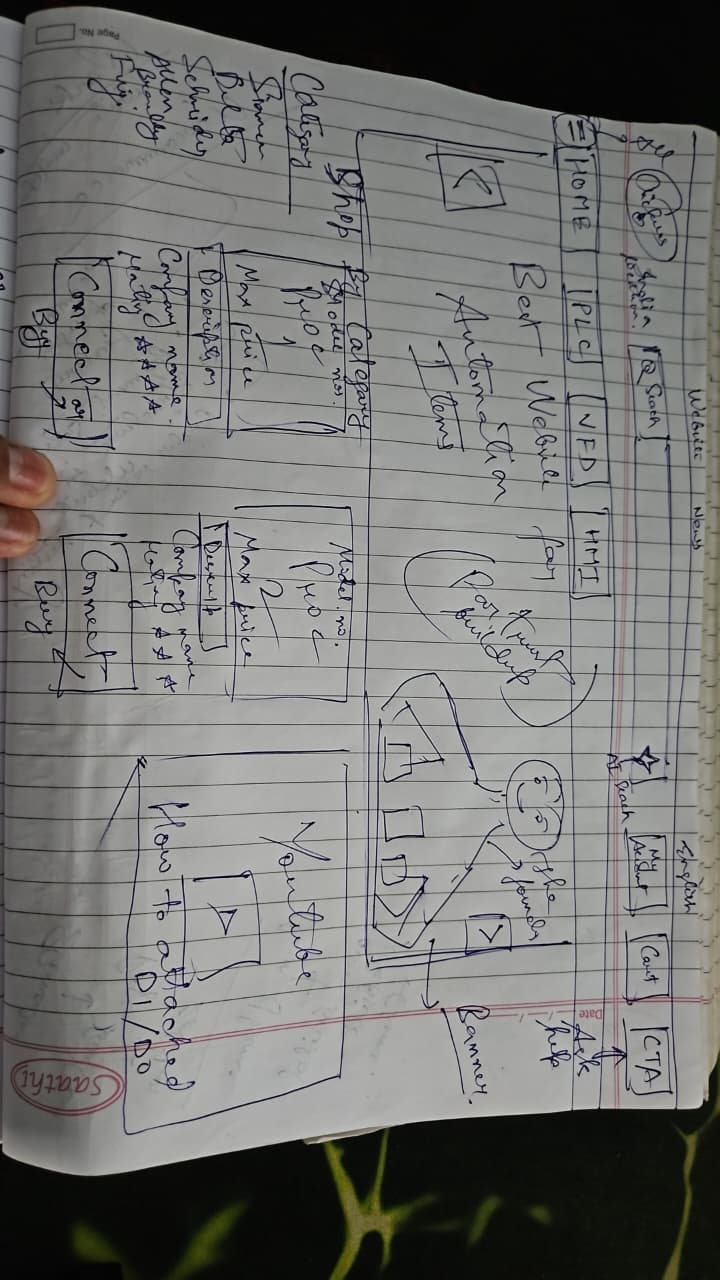 Website Name
English
All
India
location.
Q Search
AI Search
My Account
Cart
CTA
Ask
help
HOME
PLC
VFD
HMI
<
Best Website for
Automation
Items
For trust
buildup
The
founder
>
Banner.
Shop By Category
Category
Delta
Schneider
Allen
Bradley
Fuji.
Model no.
PROC
1
Max price
Description
Company name.
Connect or
Buy
Model. no.
PROC
2
Max price
Company name
Connect
Buy
Youtube
How to attached
DI/DO
Page No.
Date
Saathi